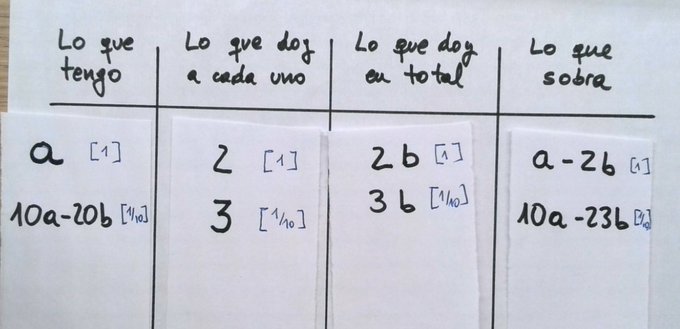 Lo que tengo
Lo que doy a cada uno
Lo que doy en total
Lo que sobra
a [1]
2 [1]
2b [1]
a-2b [1]
10a-20b [1/10]
3 [1/10]
3b [1/10]
10a-23b [1/10]